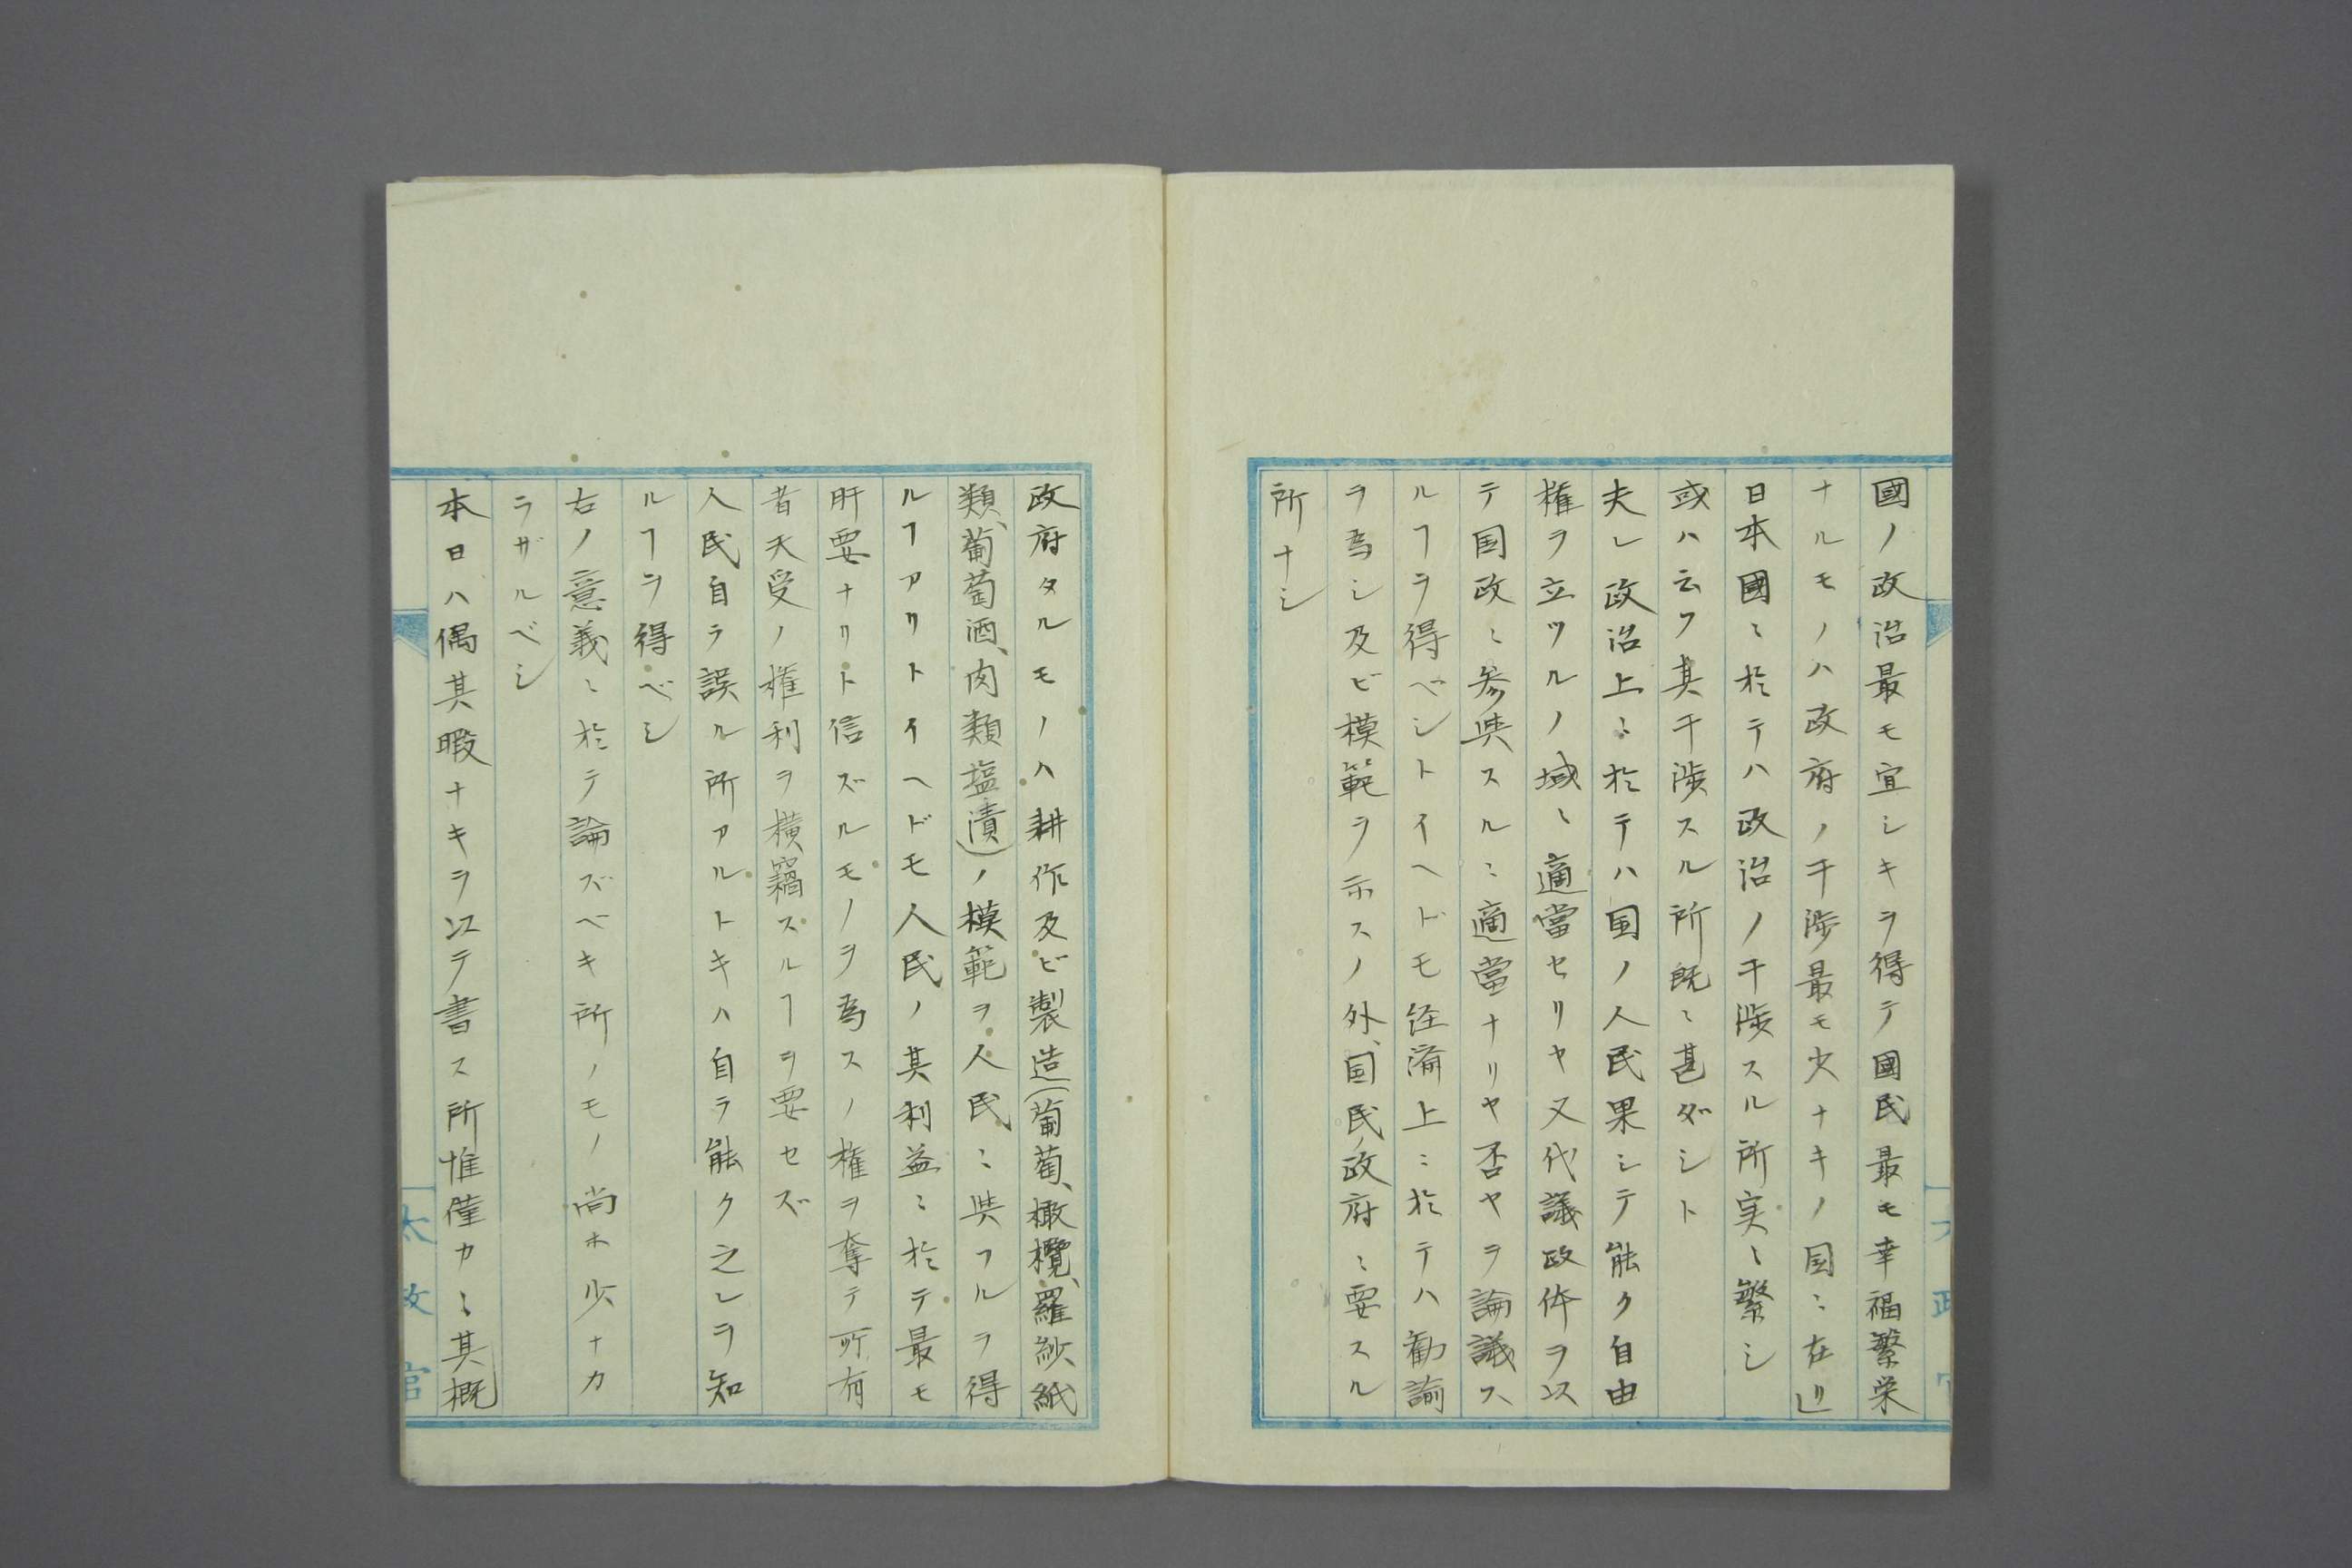 國ノ政治最モ宜シキヲ得テ國民最モ幸福繁栄
ナルモノハ政府ノ干渉最モ少ナキノ国ニ在リ」
日本國ニ於テハ政治ノ干渉スル所実ニ繁シ
或ハ云フ其干渉スル所既ニ甚ダシト
夫レ政治上ニ於テハ国ノ人民果シテ能ク自由
権ヲ立ツルノ域ニ適當セリヤ又代議政体ヲ以
テ国政ニ参與スルニ適當ナリヤ否ヤヲ論議ス
ルヿヲ得ベシトイヘドモ経濟上ニ於テハ勧諭
ヲ為シ及ビ模範ヲ示スノ外、国民ノ政府ニ要スル
所ナシ
政府タルモノハ耕作及ビ製造(葡萄、橄欖、羅紗、紙
類、葡萄酒、肉類塩漬)ノ模範ヲ人民ニ與フルヲ得
ルヿアリトイヘドモ人民ノ其利益ニ於テ最モ
肝要ナリト信ズルモノヲ為スノ権ヲ奪テ所有
者天受ノ権利ヲ横竊スルヿヲ要セズ
人民自ラ誤ル所アルトキハ自ラ能ク之レヲ知
ルヿヲ得ベシ
右ノ意義ニ於テ論ズベキ所ノモノ尚ホ少ナカ
ラザルベシ
本日ハ偶其暇ナキヲ以テ書ス所惟僅カニ其概
太政官